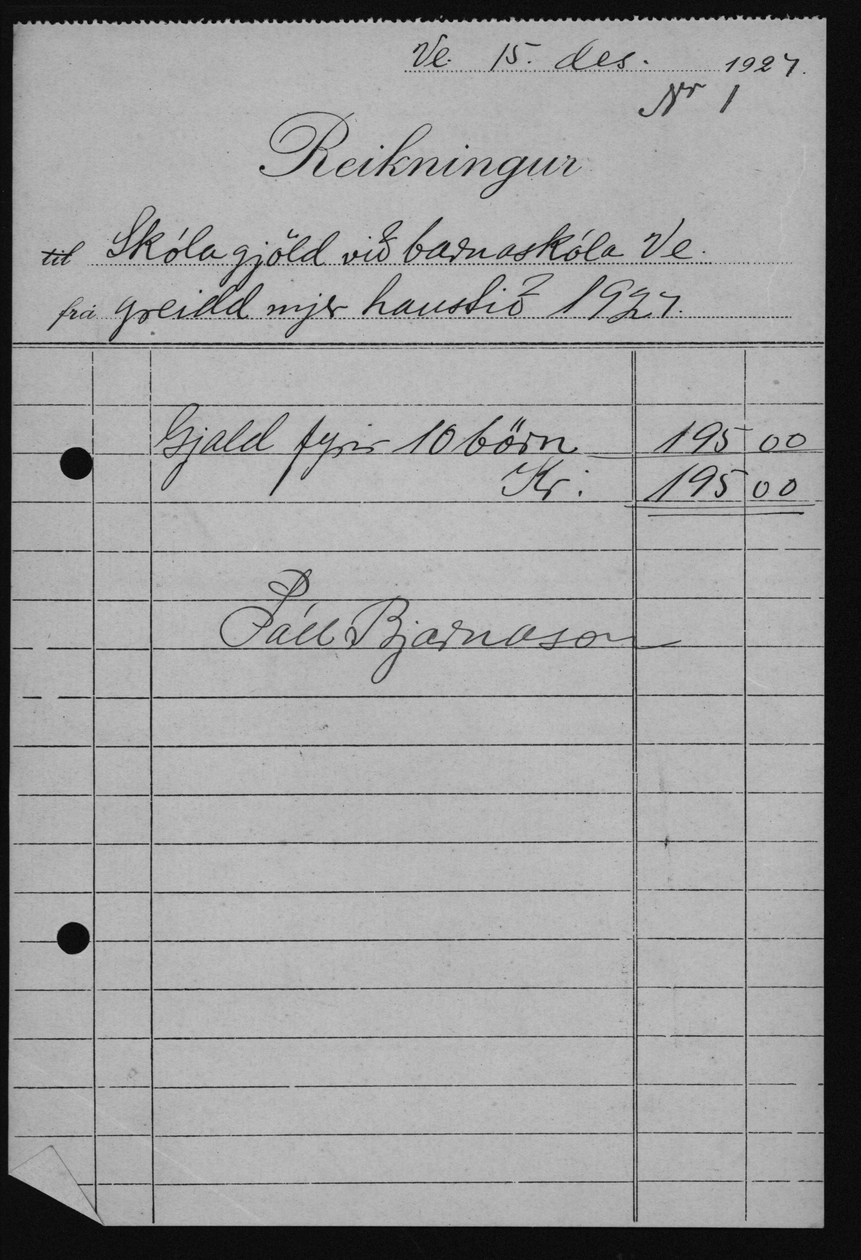 Ve. 15. des. 1927.
Nr 1
Reikningur
til Skólagjöld við barnaskóla Ve.
frá greidd mjer haustið 1927.
Gjald fyrir 10 börn 195 00
Kr: 195 00
Páll Bjarnason